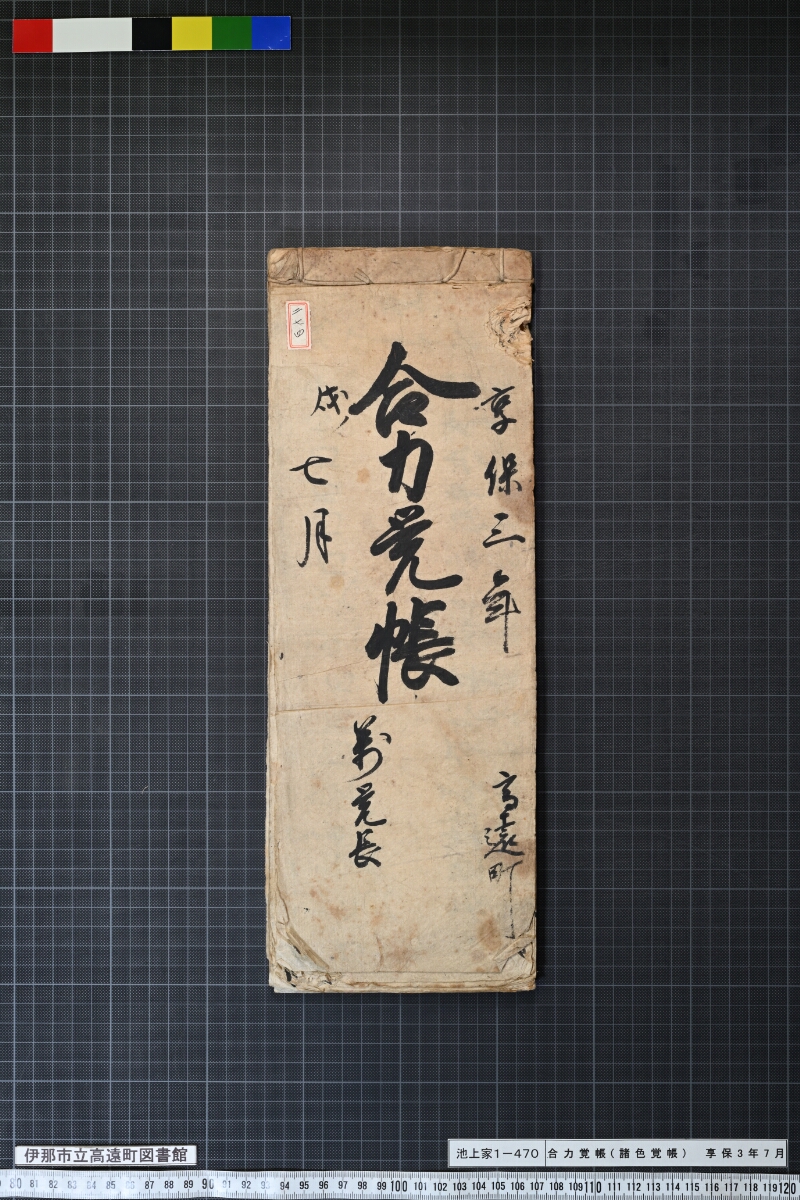 享保三年
高遠町
合力覚帳
萬覚長
戌
七月
二七四
伊那市立高遠町図書館
池上家1−470 合力覚帳(諸色覚帳) 享保3年7月
80 81 82 83 84 85 86 87 88 89 90 91 92 93 94 95 96 97 98 99 100 101 102 103 104 105 106 107 108 109 110 111 112 113 114 115 116 117 118 119 120